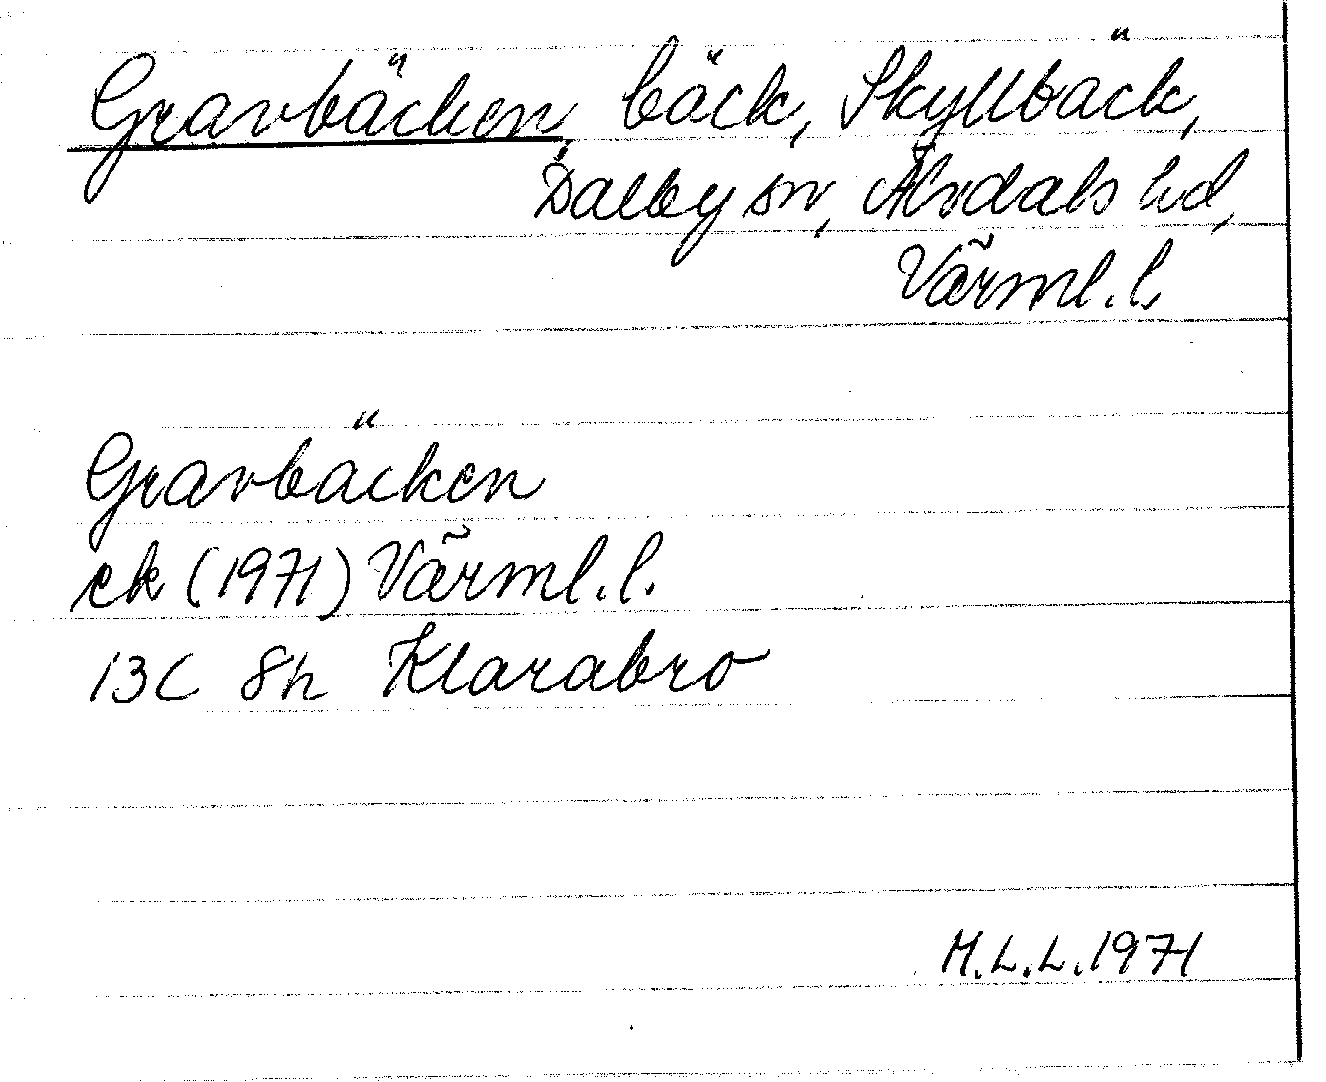 Gravbäcken, bäck, Skyllbäck,
Dalby sn, Älvdals hd,
Värml. l.
Gravbäcken
ek (1971) Värml. l.
13C 8h Klarabro
M.L.L. 1971